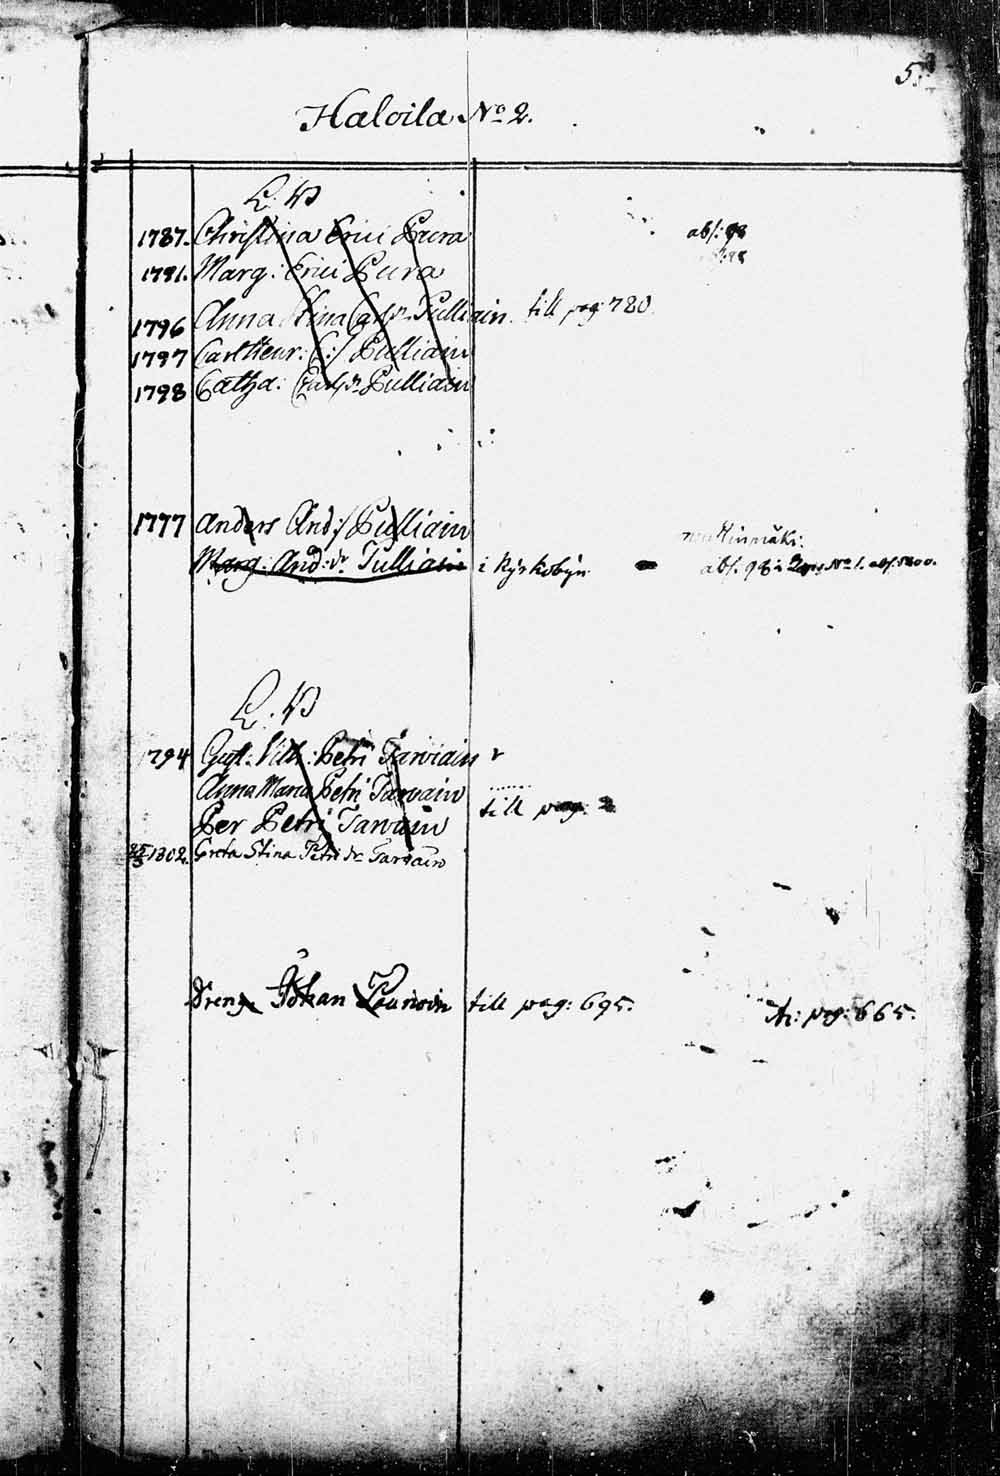 5.
Haloila No 2.
L. W
1787. Christina Erici Pura abs: 98
1791. Marg: Erici Pura
1796 Anna Stina Carlsdr Pulliain. till pag: 780.
1797 Carl Henr: C:s Pulliain
1798 Catha: Carlsdr Pulliain
1777 Anders And:s Pulliain
Marg: And:dr Pulliain i Kyrkobyn abs. 98 No 1. abs. 1800.
L. W
1794 Gust: Vilh: Petri Tarviain
Anna Maria Petri Tarvain
Per Petri Tarvain till pag: 2
1802. Greta Stina Petri dr Tarvain
Dreng Johan till pag: 695. pag: 665.